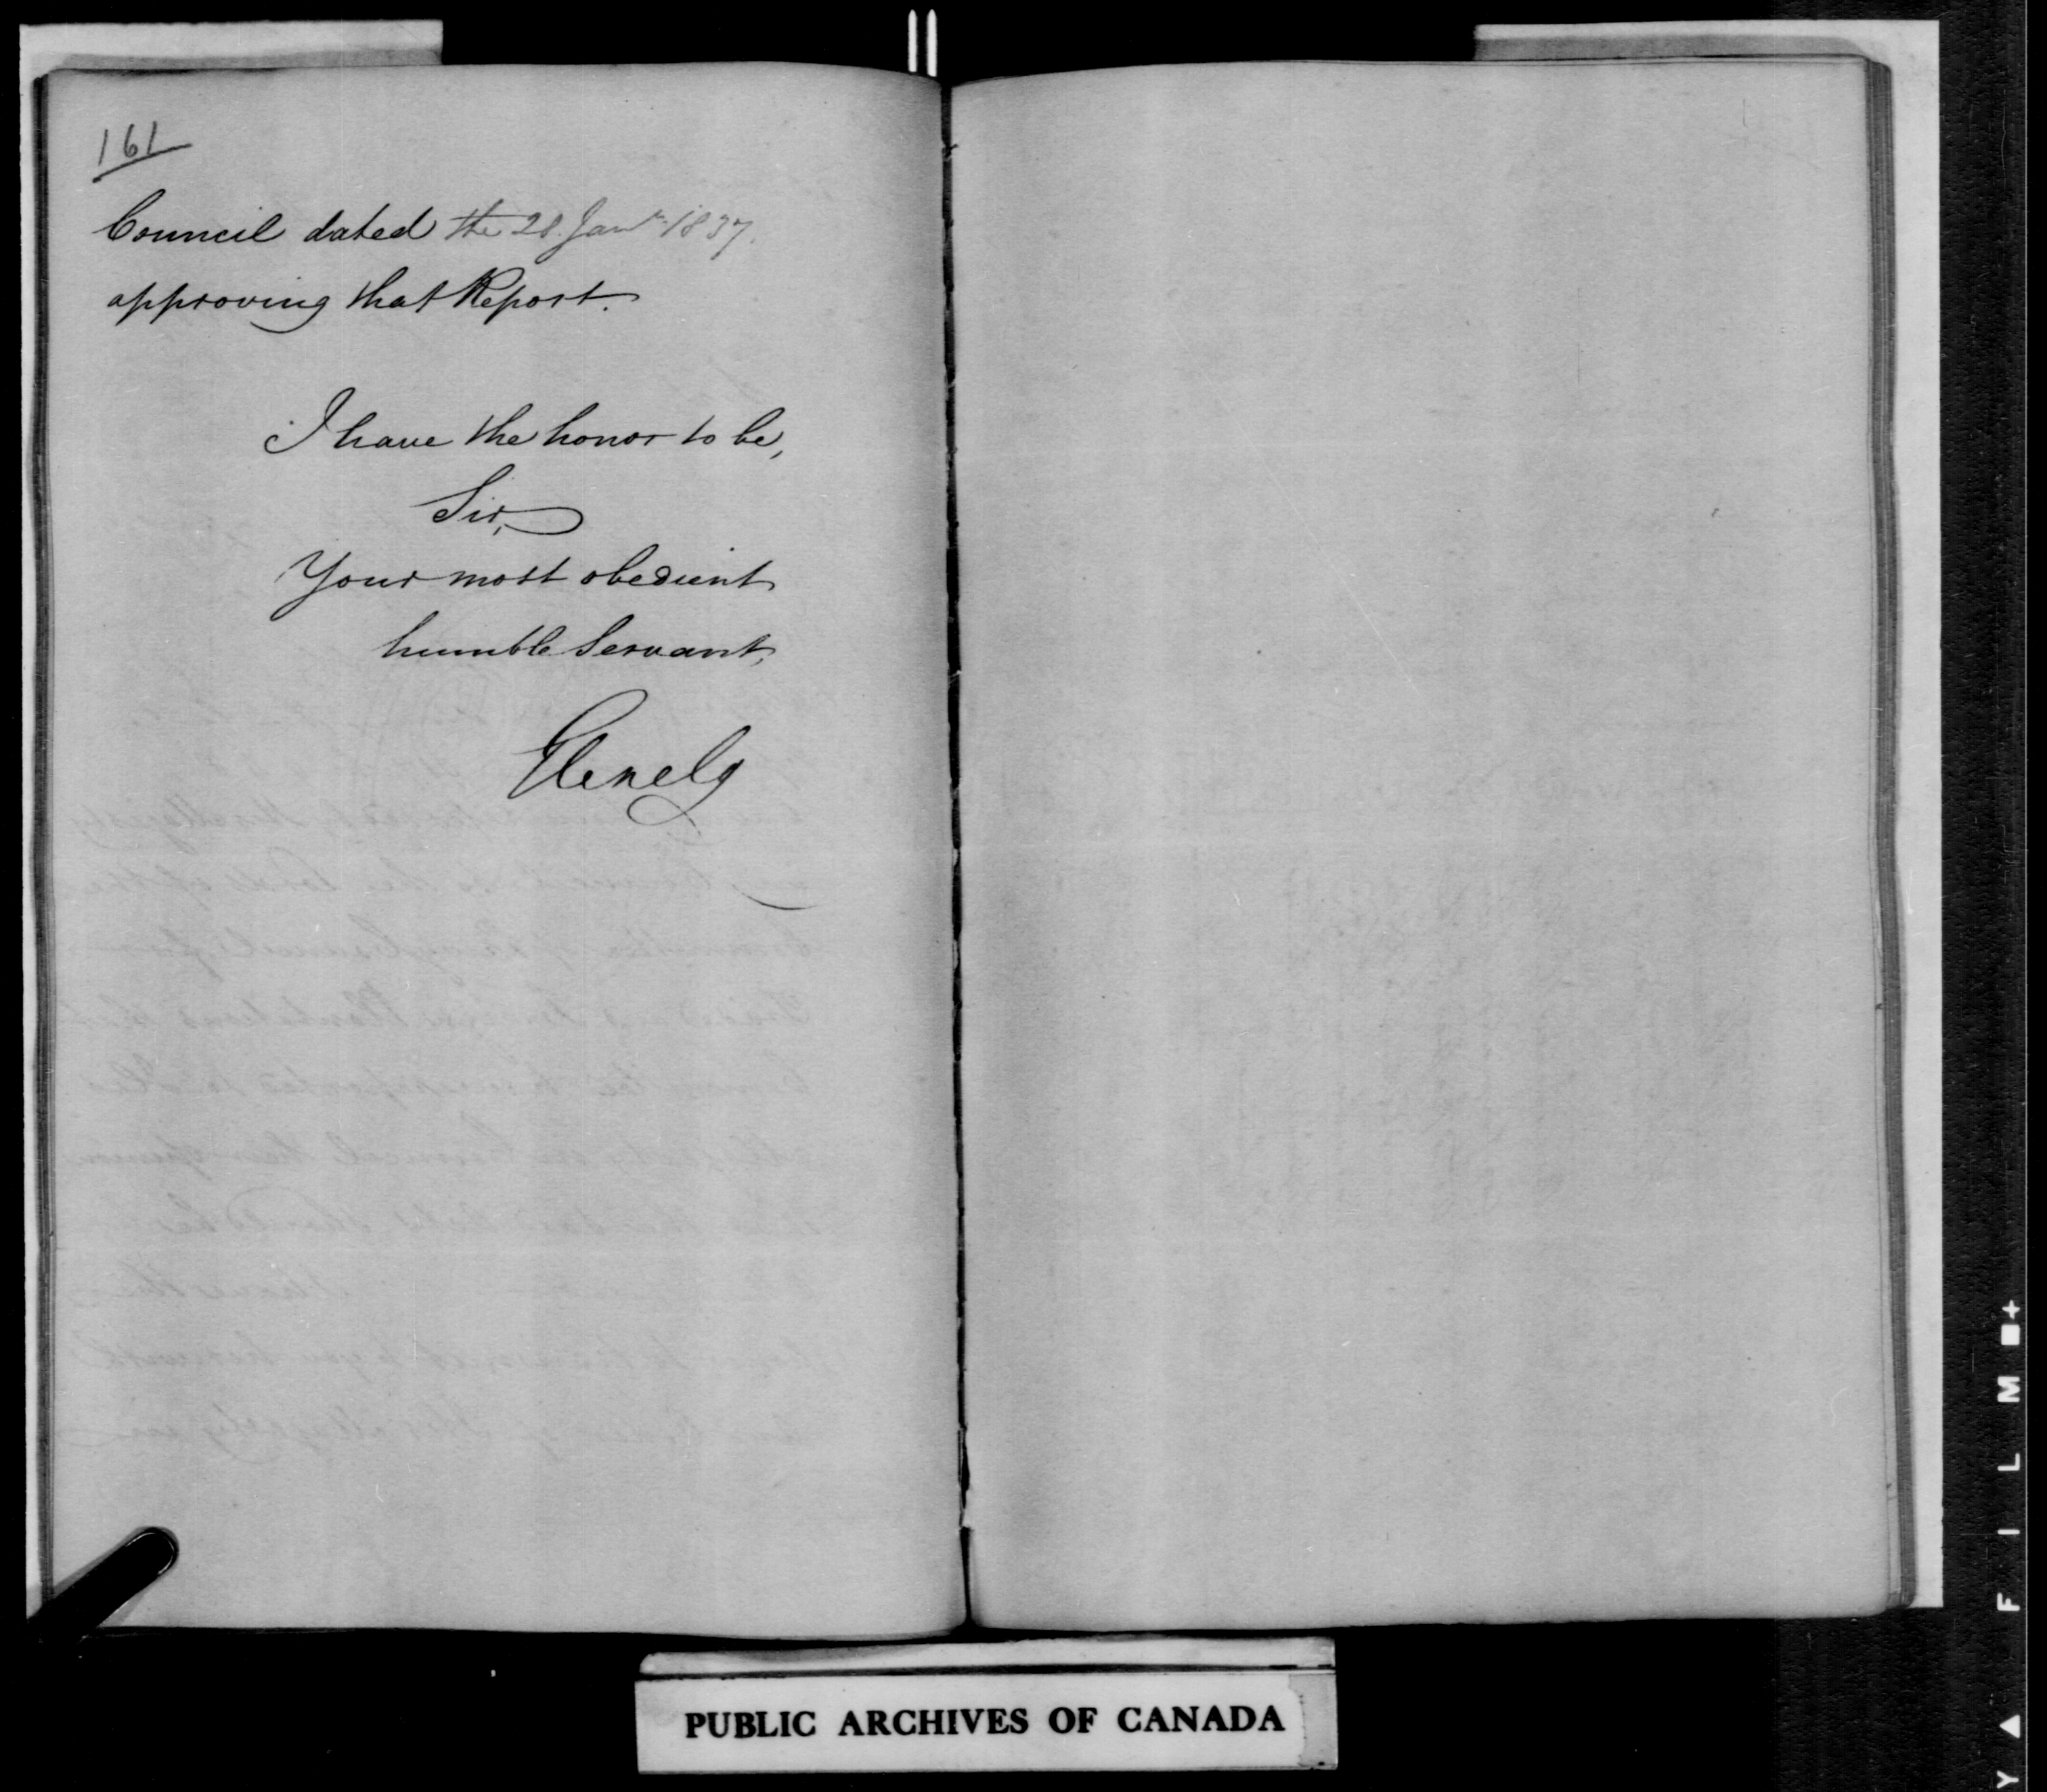 161
Council dated the 28. Jany 1837.
approving that Report.
I have the honor to be,
Sir,
Your most obedient
humble Servant,
Glenelg
PUBLIC ARCHIVES OF CANADA
Y ▲ F I L M ■+